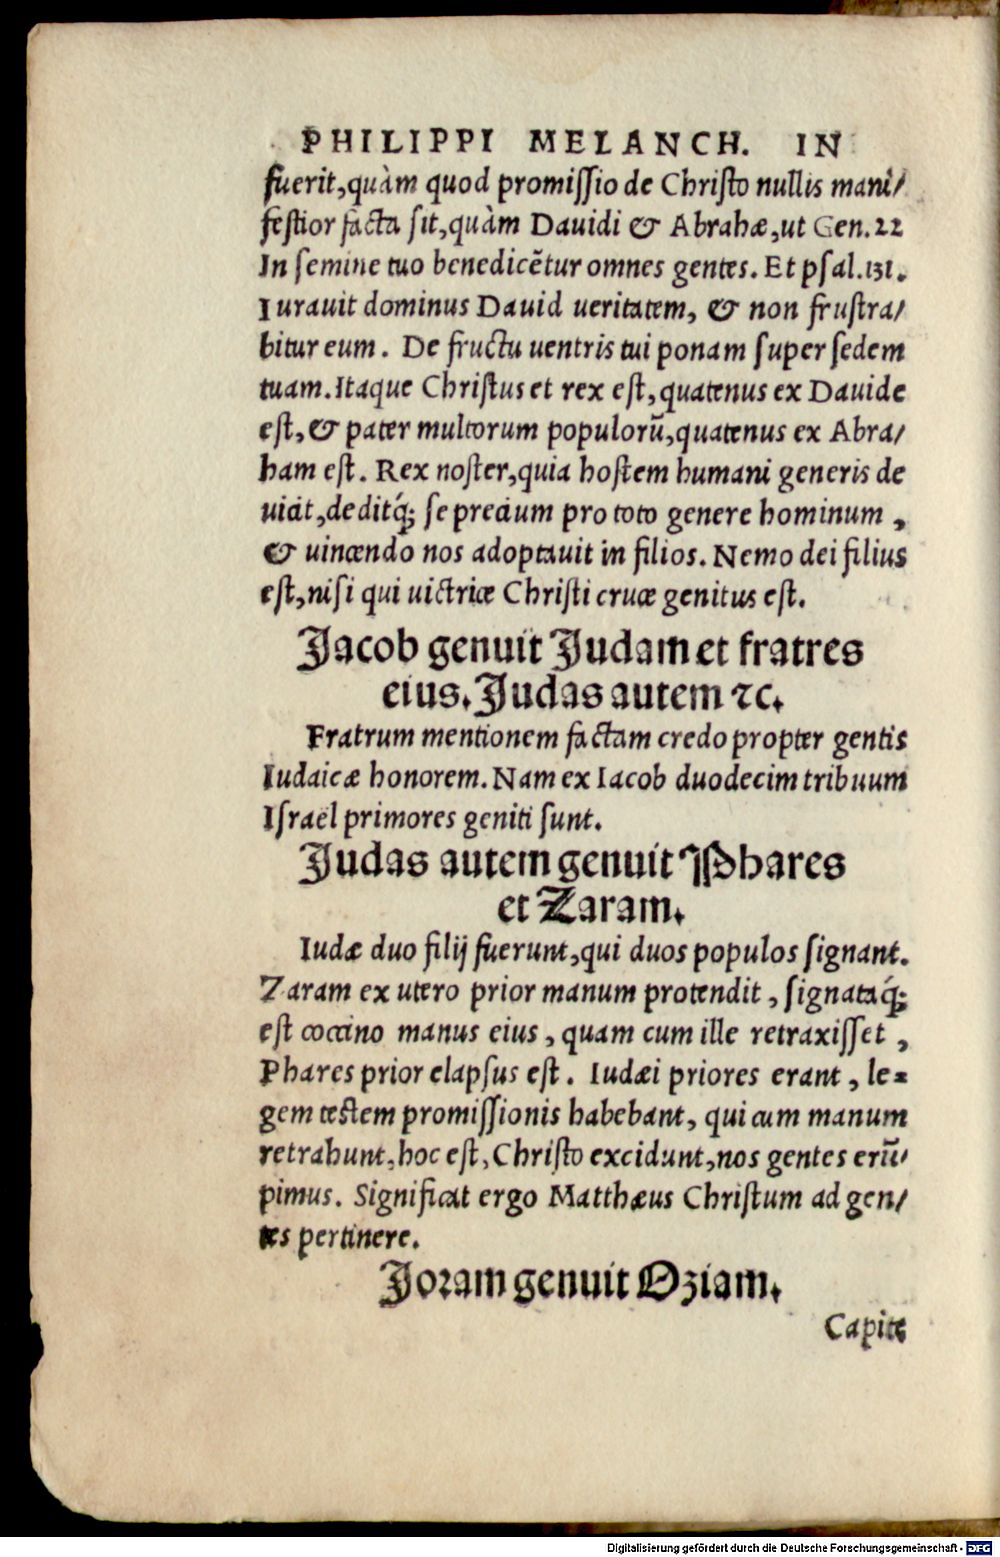 PHILIPPI MELANCH. IN
fuerit,quàm quod promissio de Christo nullis mani/
festior facta sit,quàm Dauidi & Abrahæ,ut Gen.22
In semine tuo benedicẽtur omnes gentes. Et psal.131.
Iurauit dominus Dauid ueritatem, & non frustra/
bitur eum. De fructu uentris tui ponam super sedem
tuam.Itaque Christus et rex est,quatenus ex Dauide
est,& pater multorum populorũ,quatenus ex Abra/
ham est. Rex noster,quia hostem humani generis de
uicit,deditq́; se precium pro toto genere hominum ,
& uincendo nos adoptauit in filios. Nemo dei filius
est,nisi qui uictrice Christi cruce genitus est.
Jacob genuit Judam et fratres
eius.Judas autem ⁊c.
Fratrum mentionem factam credo propter gentis
Iudaicæ honorem. Nam ex Iacob duodecim tribuum
Israël primores geniti sunt.
Judas autem genuit Phares
et Zaram.
Iudæ duo filij fuerunt,qui duos populos signant.
Zaram ex utero prior manum protendit , signataq́;
est coccino manus eius , quam cum ille retraxisset ,
Phares prior elapsus est. Iudæi priores erant , le=
gem testem promissionis habebant, qui cum manum
retrahunt,hoc est,Christo excidunt,nos gentes erũ/
pimus. Significat ergo Matthæus Christum ad gen/
tes pertinere.
Joram genuit Oziam.
Capite
Digitalisierung gefördert durch die Deutsche Forschungsgemeinschaft - DFG